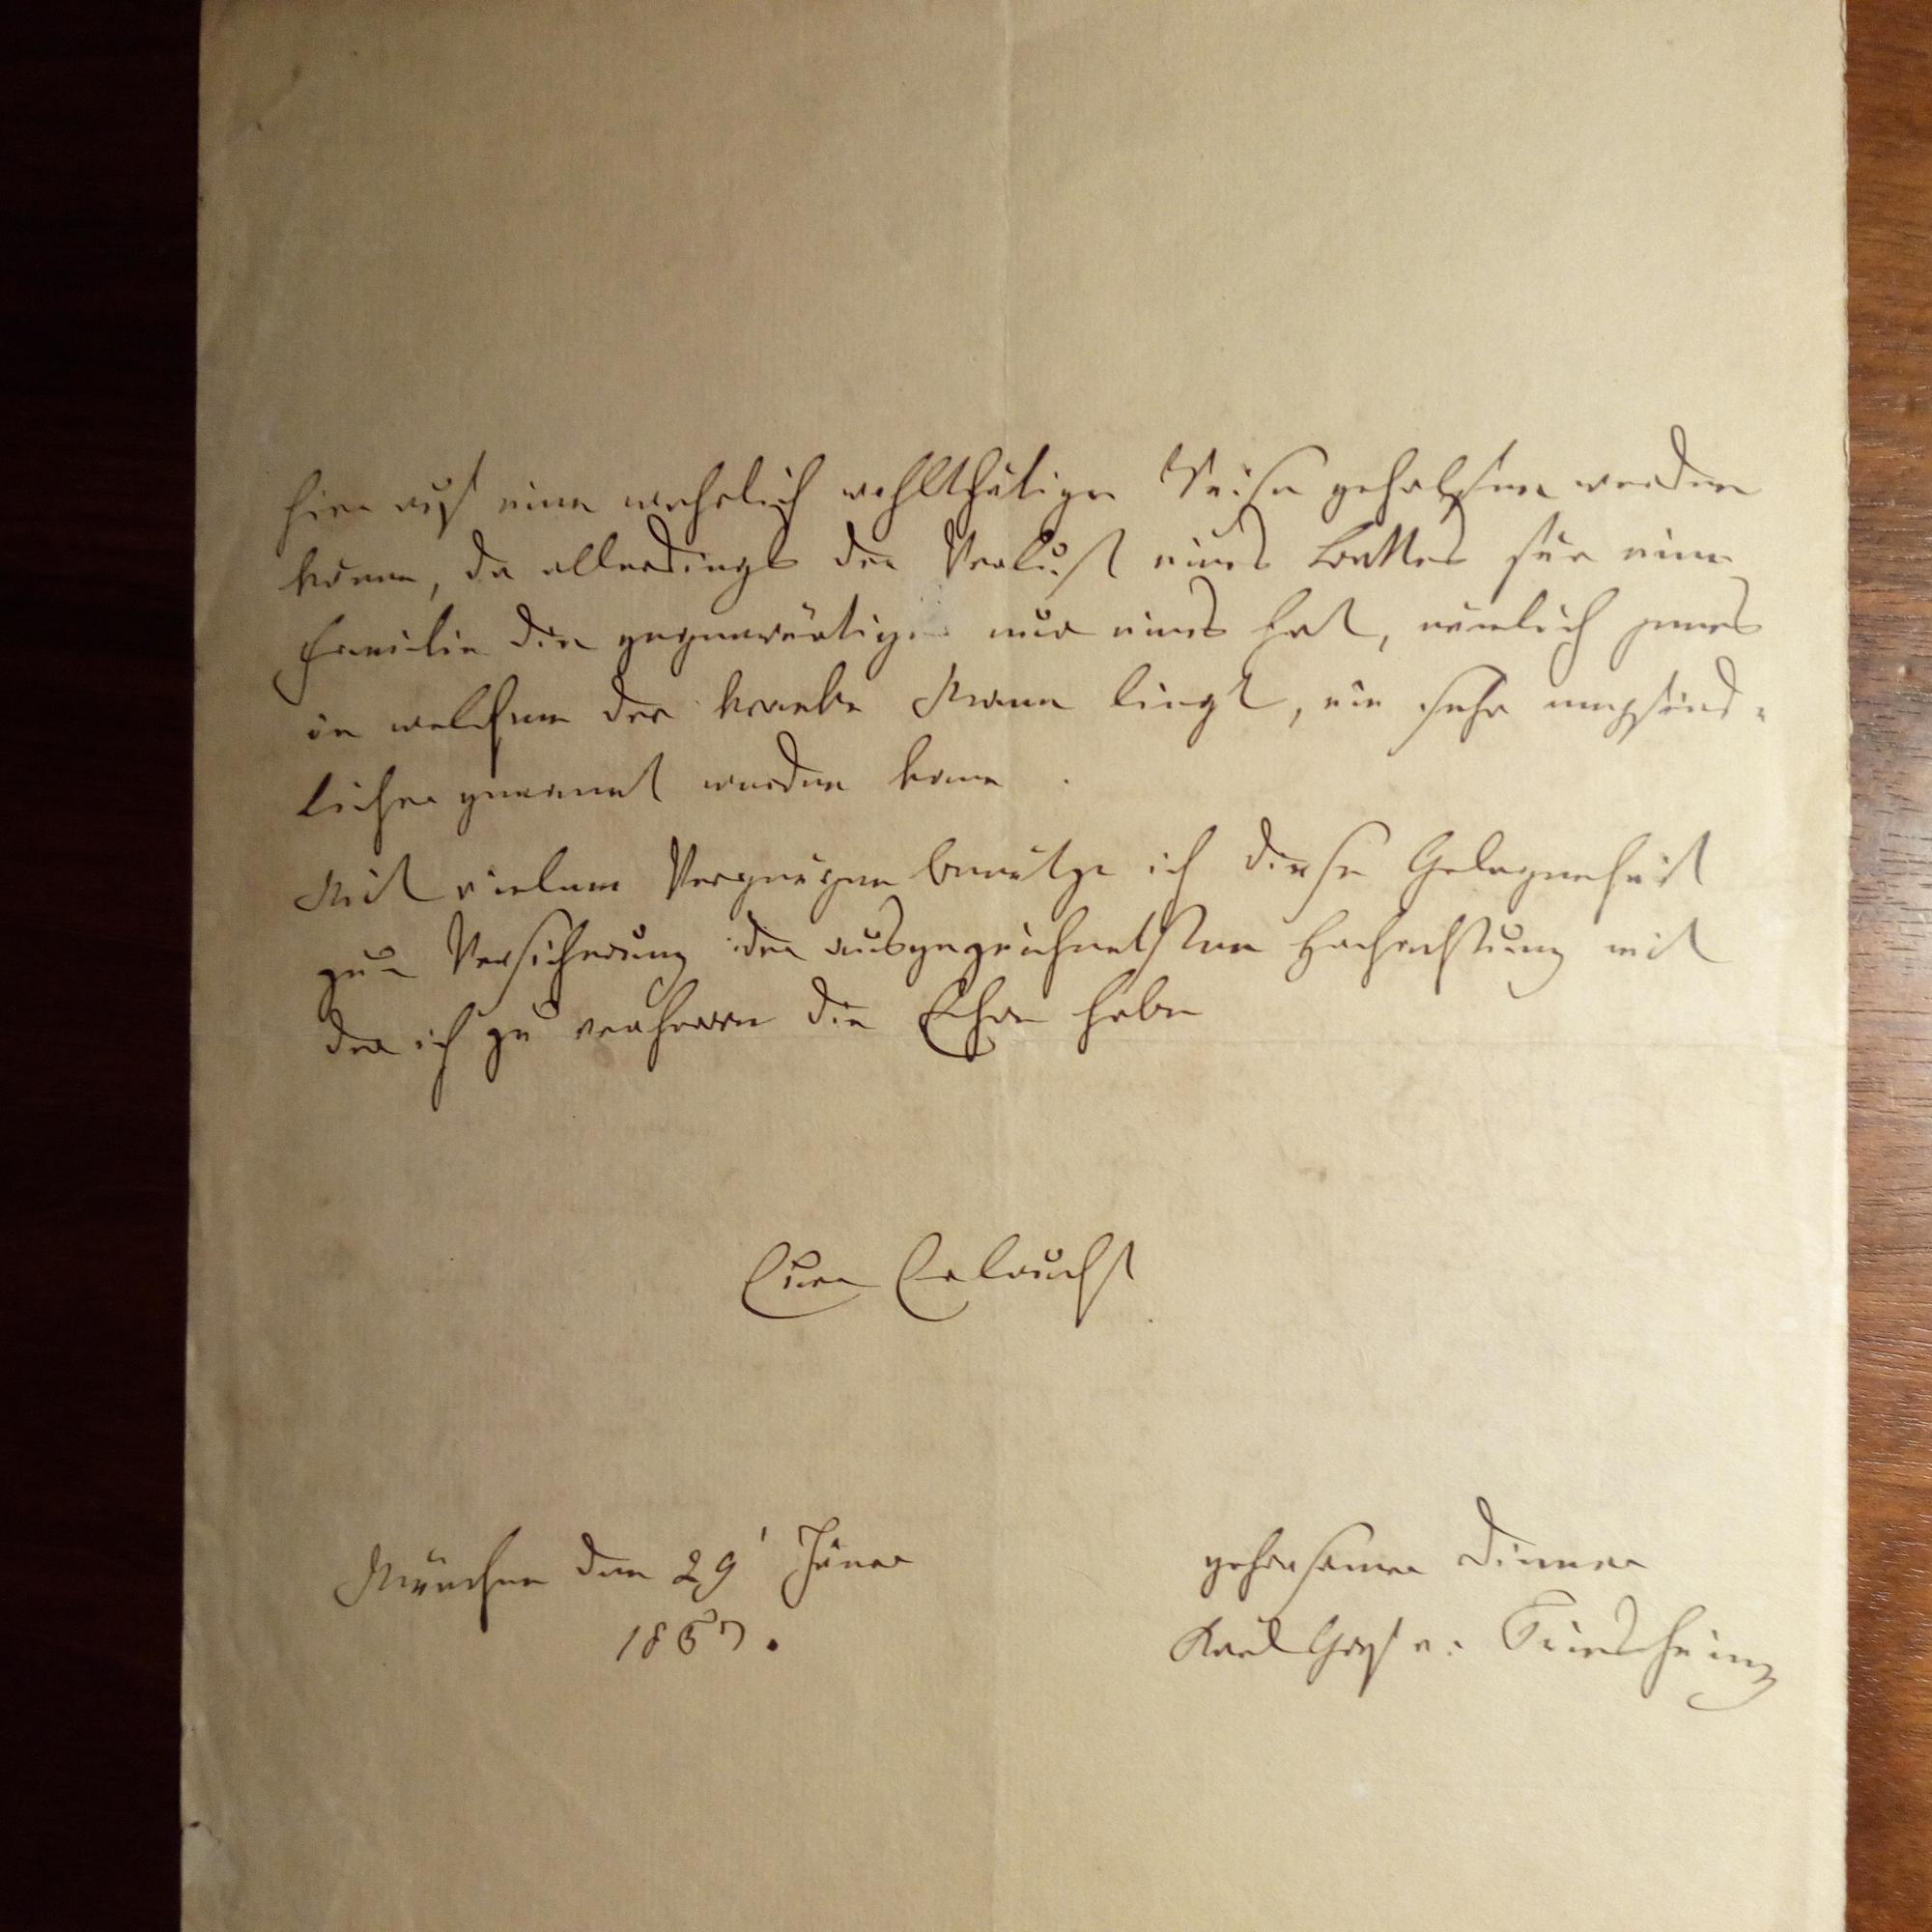 hier auf eine wahrlich wohlthätige Weise geholfen werden
kann, da allerdings der Verlust eines Bettes für eine
Familie die gegenwärtig nur eines hat, nämlich jenes
in welchem der kranke Mann liegt, ein sehr empfind-
licher genannt werden kann.
Mit vielem Vergnügen benütze ich diese Gelegenheit
zur Versicherung der ausgezeichnetsten Hochachtung mit
der ich zu verharren die Ehre habe
Euer Erlaucht
München den 29' Jäner
1867.
gehorsamer Diener
Karl Graf v: